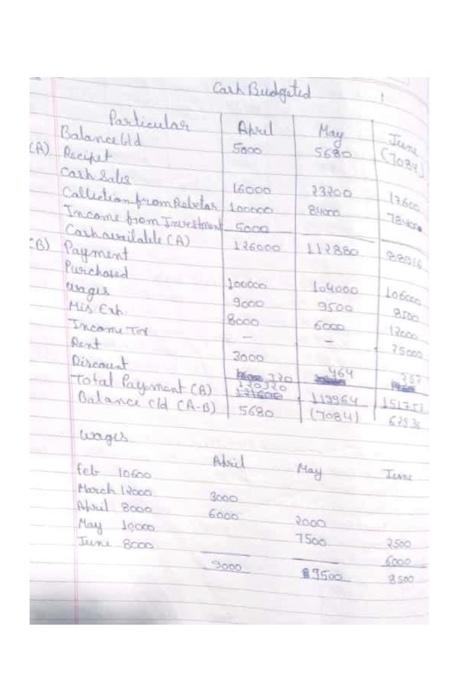 Cash Budgeted
Particular April May June
Balance b/d 5000 5680 (7084)
(A) Recipet
Cash Sales 16000 23200 17600
Collection from Debetors 100000 84000 78400
Income from Investment 5000
Cash available (A) 126000 112880 88916
(B) Payment
Purchased 100000 104000 106000
Wages 9000 9500 8500
Mis Exp. 8000 6000 12000
Income Tax - - 25000
Rent 3000
Discount 320 464
Total Payment (B) 120320 119964
Balance c/d (A-B) 5680 (7084)
Wages
April May June
Feb 10600
March 12000 3000
April 8000 6000 2000
May 10000 7500 2500
June 8000 6000
9000 9500 8500